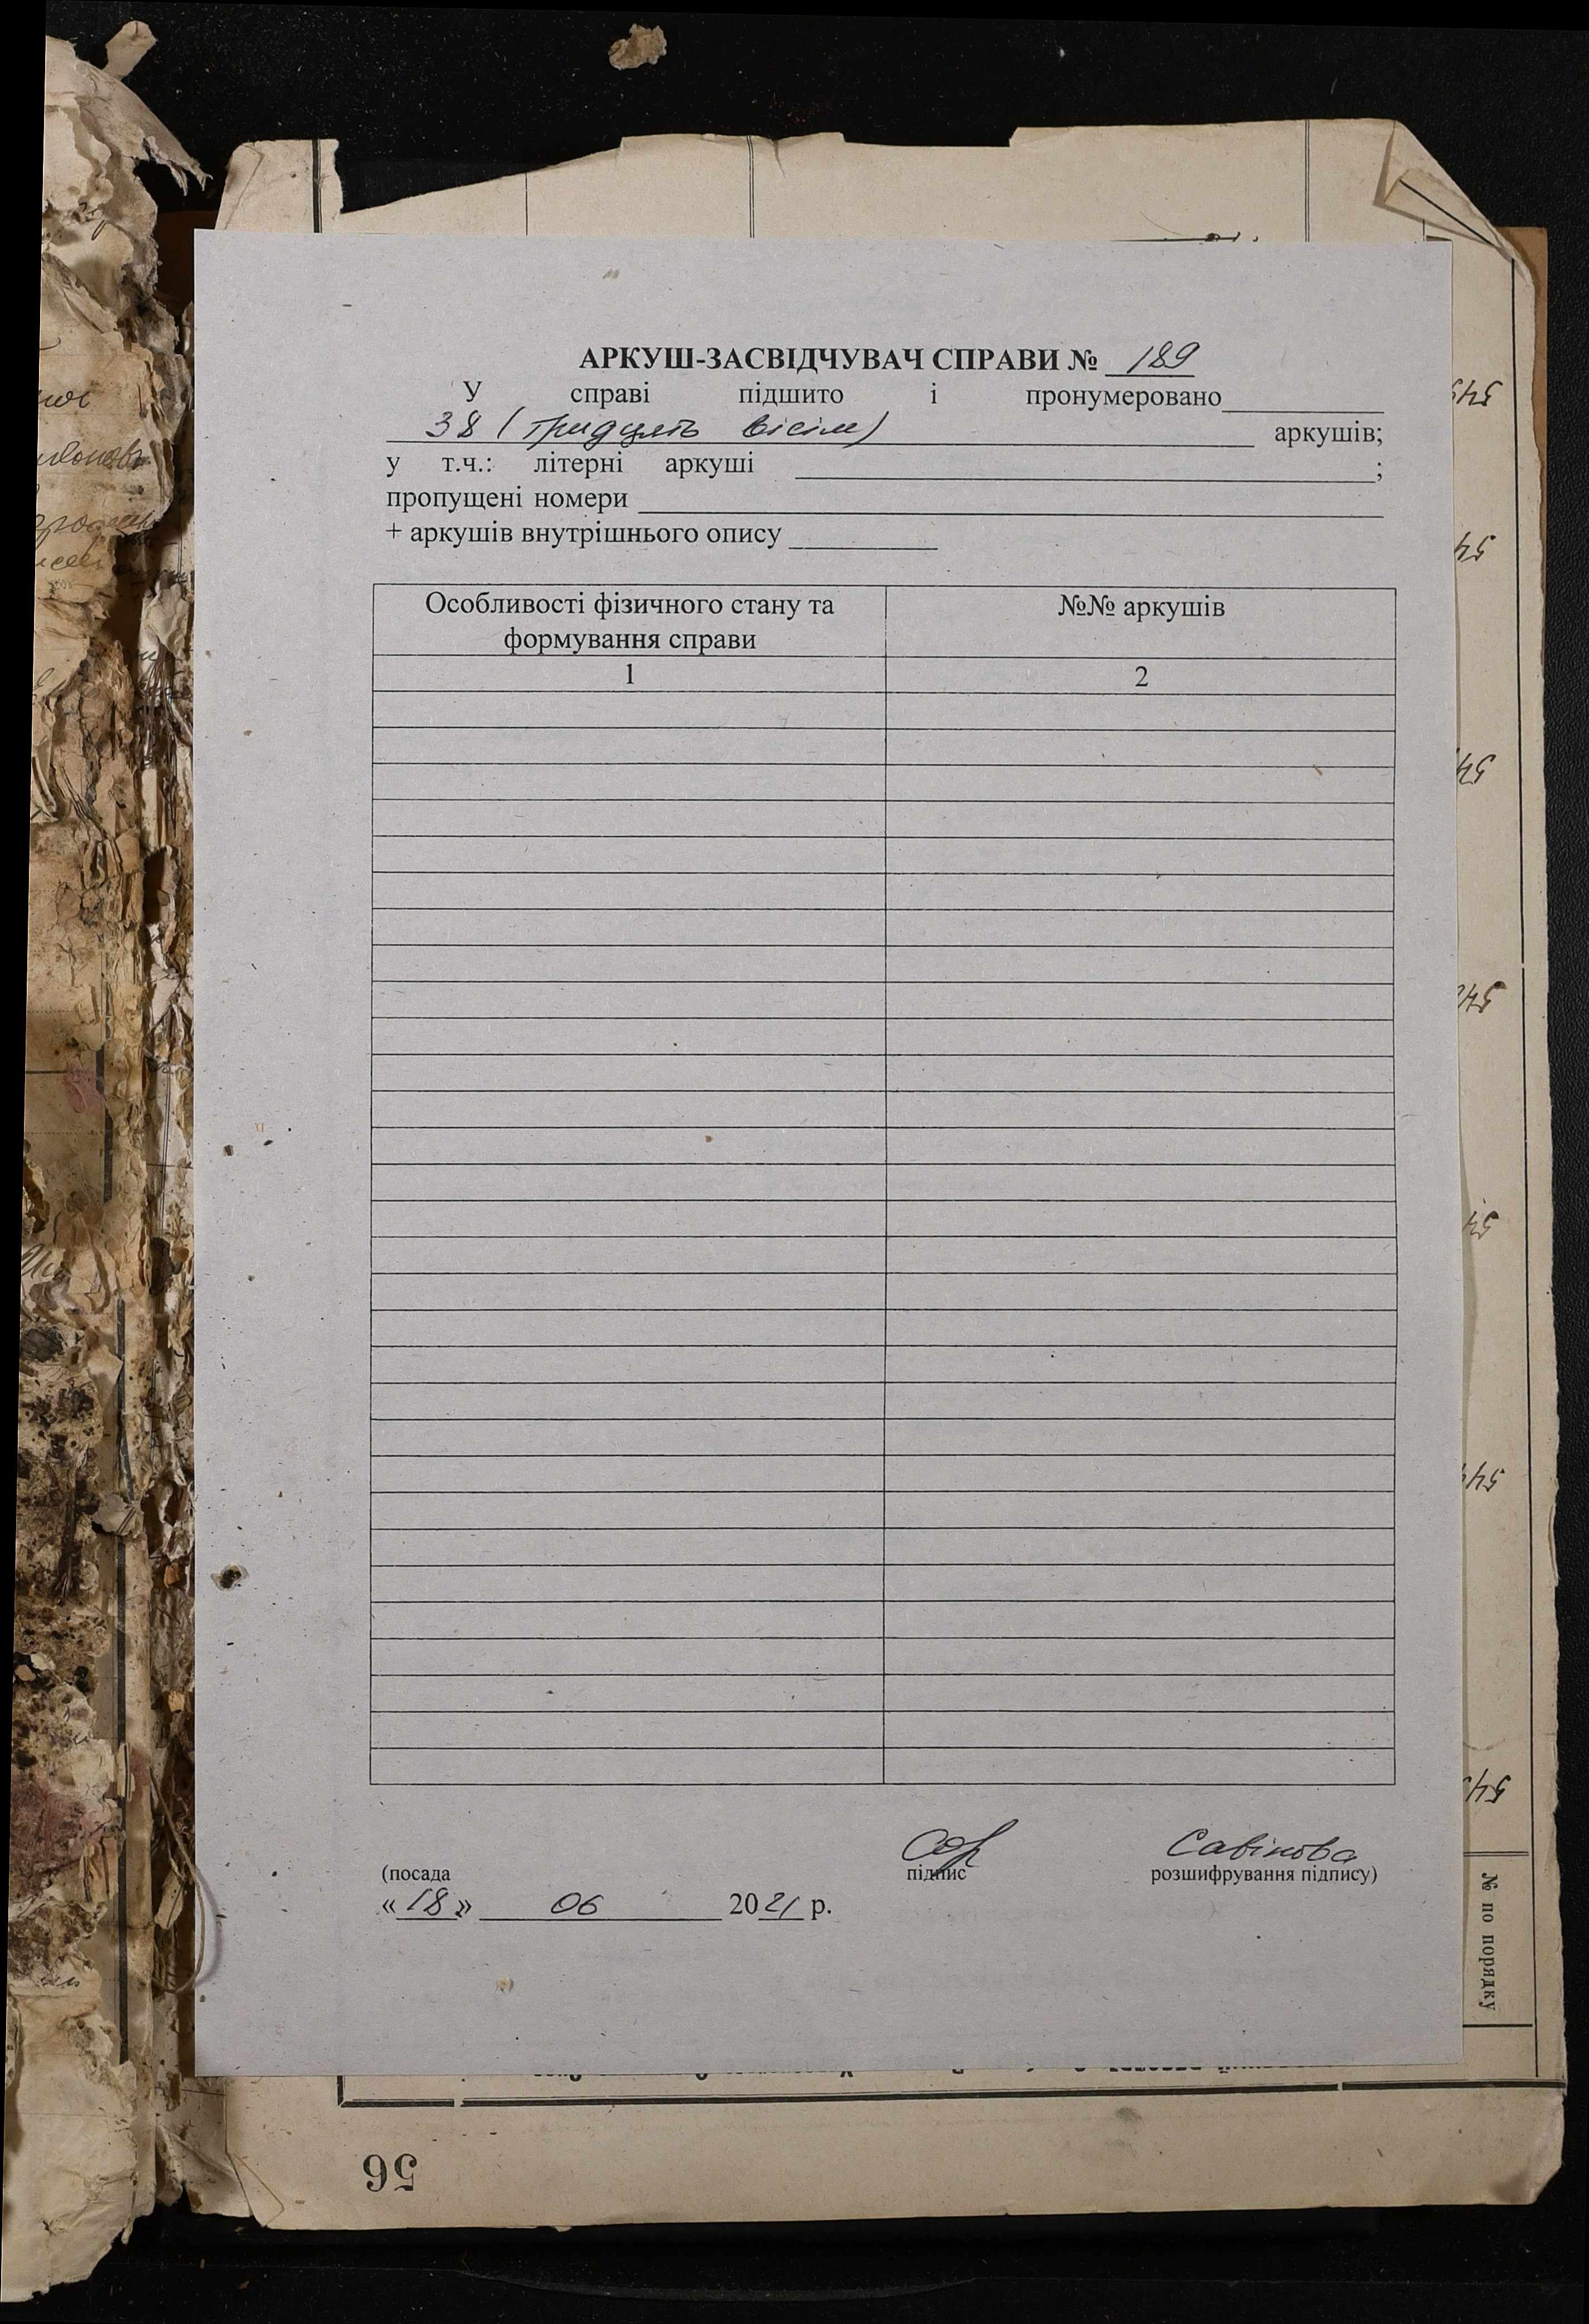 АРКУШ-ЗАСВІДЧУВАЧ СПРАВИ № 189
У справі підшито і пронумеровано
38 (тридцять вісім) аркушів;
у т.ч.: літерні аркуші ;
пропущені номери
+ аркушів внутрішнього опису
Особливості фізичного стану та формування справи
№№ аркушів
1 2
Савінова
(посада підпис розшифрування підпису)
«18» 06 2021 р.
№ по порядку
56